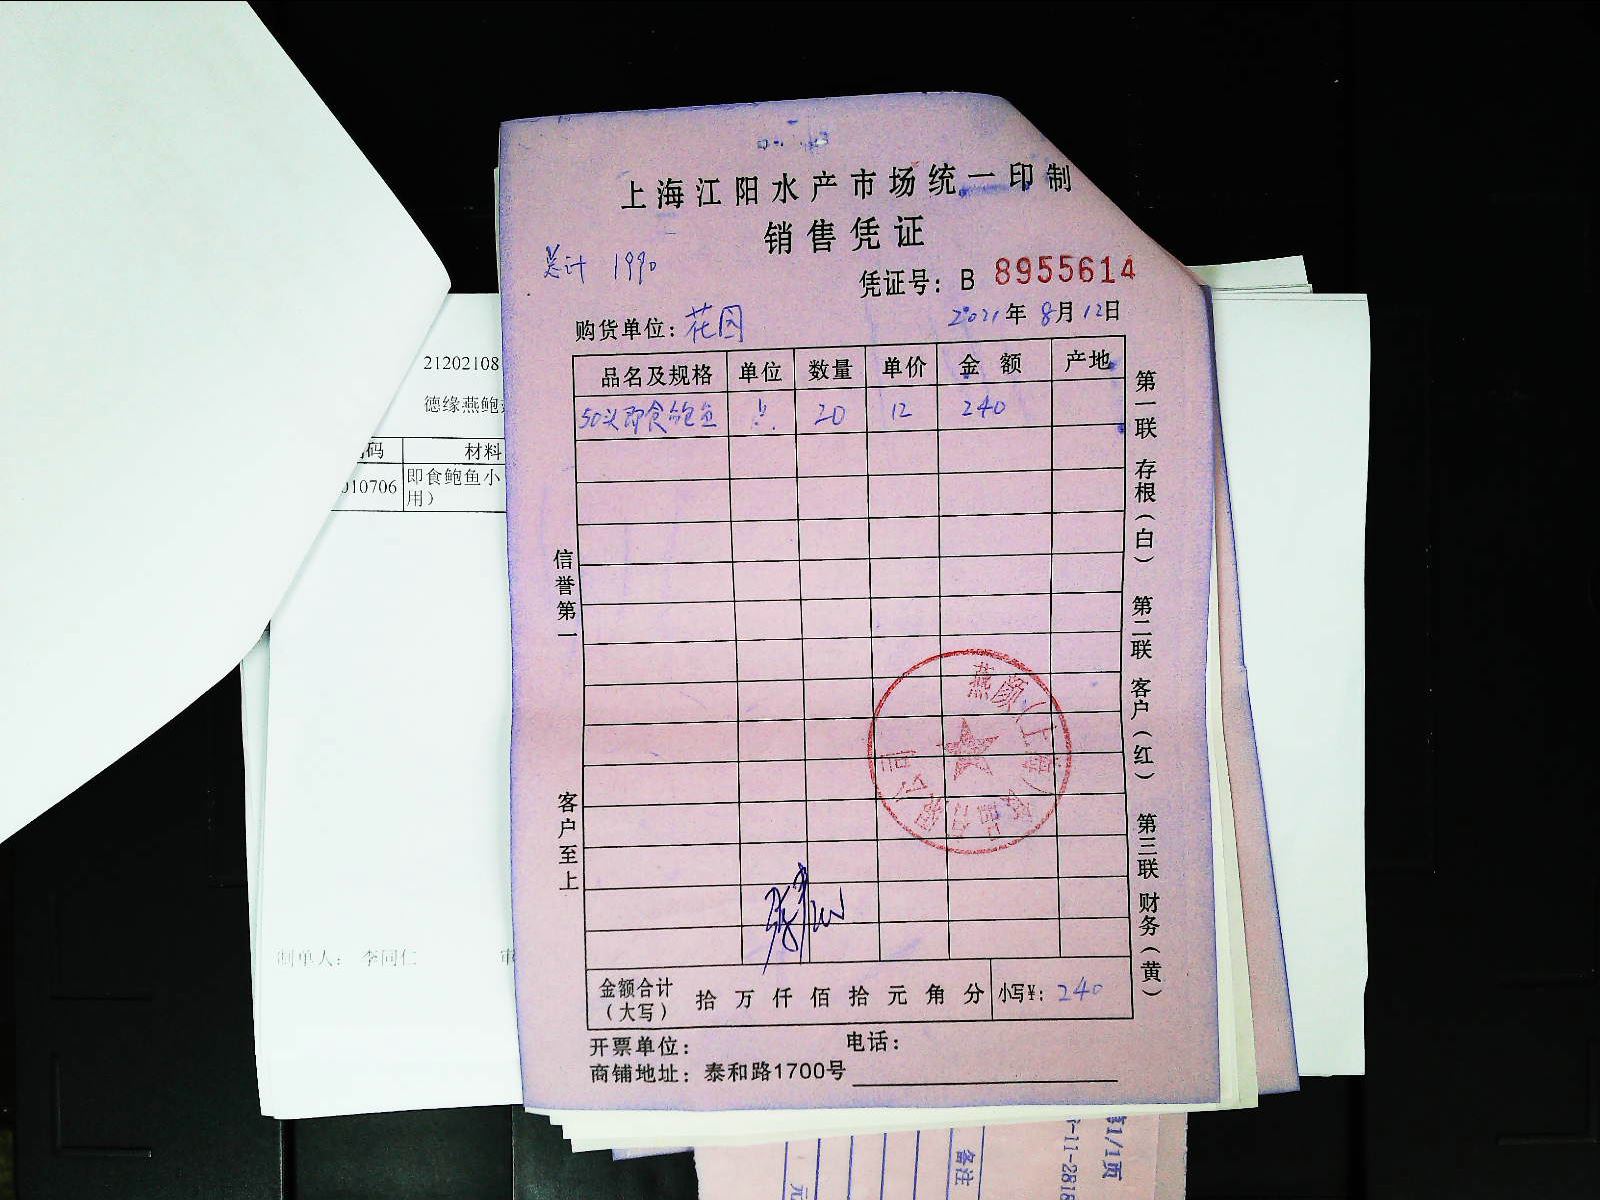 上海江阳水产市场统一印制
销售凭证
总计 1990
凭证号：B 8955614
购货单位：花园
2021年 8月 12日
品名及规格 单位 数量 单价 金 额 产地
50头即食鲍鱼 只 20 12 240
信誉第一
客户至上
第一联 存根（白） 第二联 客户（红） 第三联 财务（黄）
燕颜（上海）食品有限公司
金额合计（大写） 拾 万 仟 佰 拾 元 角 分 小写¥：240
开票单位： 电话：
商铺地址：泰和路1700号
21202108
德缘燕鲍
码 材料
010706 即食鲍鱼小
用）
制单人： 李同仁 审
第1/1页
-11-2818
备注
元